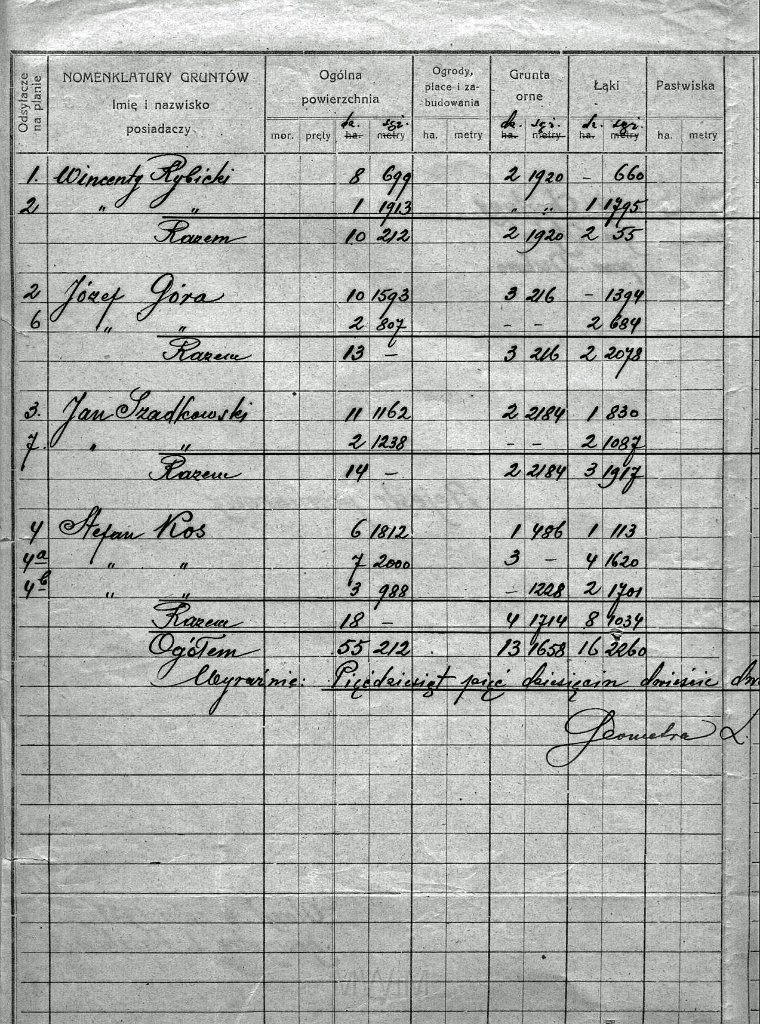 Odsyłacze na planie | NOMENKLATURY GRUNTÓW Imię i nazwisko posiadaczy | Ogólna powierzchnia | Ogrody, place i zabudowania | Grunta orne | Łąki | Pastwiska
mor. | pręty | ha. dz. | metry sąż. | ha. | metry | ha. dz. | metry sąż. | ha. dz. | metry sąż. | ha. | metry
1. Wincenty Rybicki 8 699 2 1920 – 660
2 " " 1 1913 " " 1 1795
Razem 10 212 2 1920 2 55
2 Józef Góra 10 1593 3 216 – 1394
6 " " 2 807 – – 2 684
Razem 13 – 3 216 2 2078
3. Jan Szadkowski 11 1162 2 2184 1 830
7. " " 2 1238 – – 2 1087
Razem 14 – 2 2184 3 1917
4 Stefan Kos 6 1812 1 486 1 113
4a " " 7 2000 3 – 4 1620
4b " " 3 988 – 1228 2 1701
Razem 18 – 4 1714 8 1034
Ogółem 55 212 13 1658 16 2260
Wyraźnie: Pięćdziesiąt pięć dziesięcin dwieście
Geometra L.